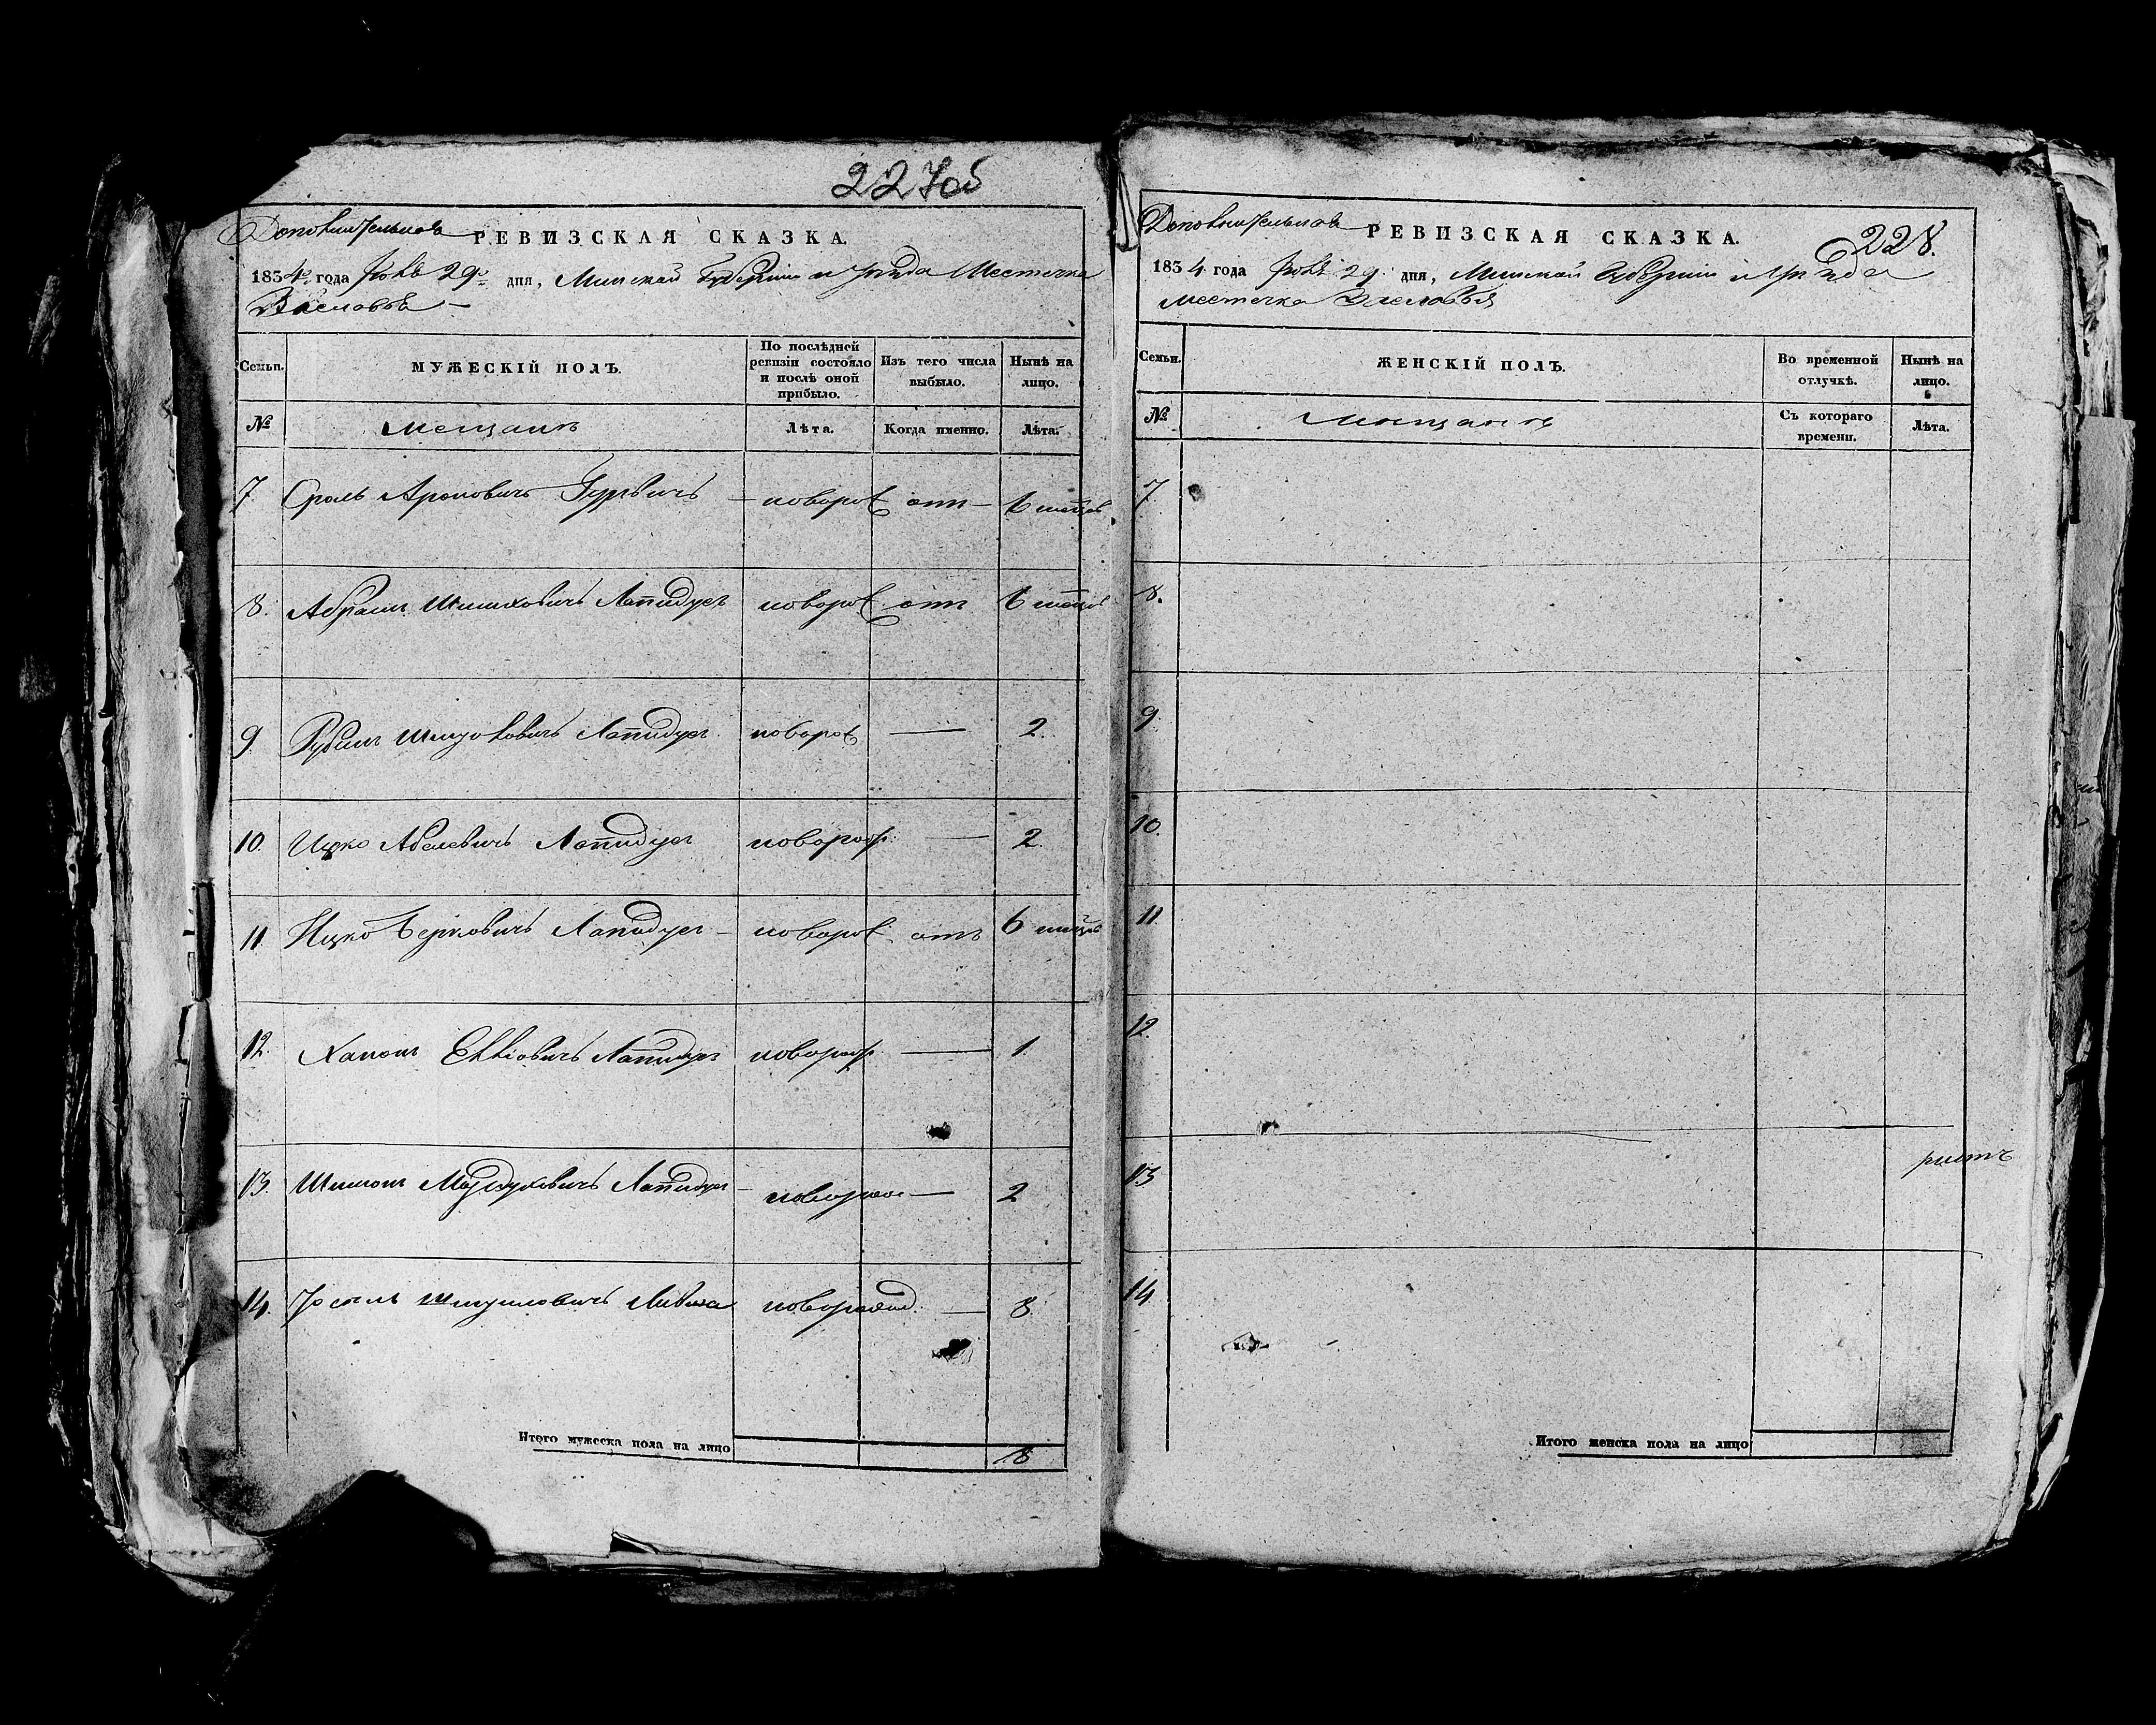 227об
Дополнительная РЕВИЗСКАЯ СКАЗКА.
1834го года 29го дня, Минской Губерніи и уѣзда Местечка
Заславля
Семьи. МУЖЕСКІЙ ПОЛЪ. По послѣдней ревизіи состояло и послѣ оной прибыло. Изъ того числа выбыло. Нынѣ на лицо.
№ Мещанъ Лѣта. Когда именно. Лѣта.
7. Сроль Ароновичъ Гурвичъ – новорож отъ – 6 месцов
8. Абрам Шимховичъ Лапидусъ новорож отъ 6 месцов
9. Рубин Шмуйловичъ Лапидус новорож — 2.
10. Ицко Абелевичъ Лапидус новорож. — 2.
11. Ицко Берковичъ Лапидус – новорож отъ 6 месцъ
12. Лапидус новорож — 1.
13. Шимон Лапидус – новорож — 2
14. Шмуиловичъ новорожд. — 8
Итого мужеска пола на лицо 8
228.
Дополнительная РЕВИЗСКАЯ СКАЗКА.
1834 года 29 дня, Минской Губерніи и уѣзда
местечка Заславля
Семьи. ЖЕНСКІЙ ПОЛЪ. Во временной отлучкѣ. Нынѣ на лицо.
№ Мещанъ Съ котораго времени. Лѣта.
7.
8.
9.
10.
11.
12.
13.
14.
Итого женска пола на лицо